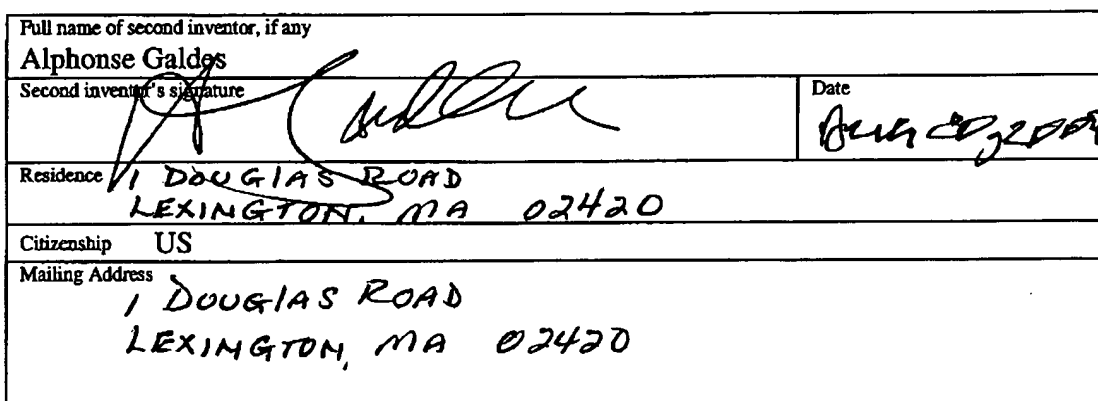 Full name of second inventor, if any
Alphonse Galdes
Second inventor's signature
Date
Residence 1 DOUGLAS ROAD
LEXINGTON, MA 02420
Citizenship US
Mailing Address
1 DOUGLAS ROAD
LEXINGTON, MA 02420